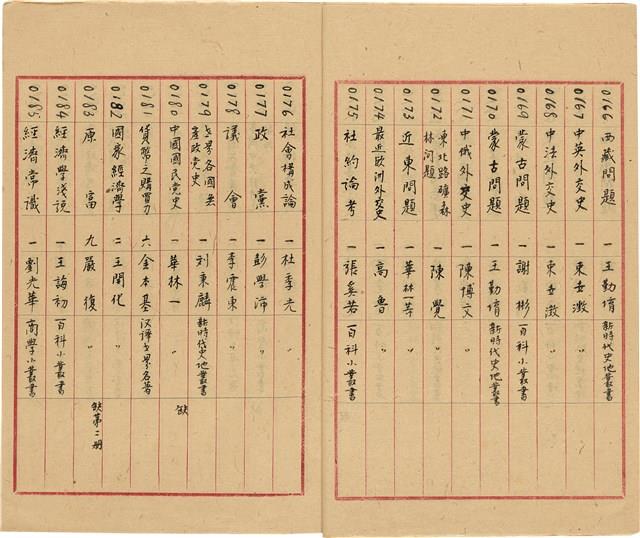 0166 西藏問題 一 王勤堉 新時代史地叢書
0167 中英外交史 一 束世澂 〃
0168 中法外交史 一 束世澂 〃
0169 蒙古問題 一 謝彬 百科小叢書
0170 蒙古問題 一 王勤堉 新時代史地叢書
0171 中俄外交史 一 陳博文 〃
0172 東北路礦森林問題 一 陳覺 〃
0173 近東問題 一 華林一等 〃
0174 最近欧洲外交史 一 高魯 〃
0175 社約論考 一 張奚若 百科小叢書
0176 社會構成論 一 杜季光 〃
0177 政黨 一 彭學沛 〃
0178 議會 一 李震東 〃
0179 世界各國無產政党史 一 刘秉麟 新時代史地叢書
0180 中國國民党史 一 華林一 〃 缺
0181 貨幣之購買力 六 金本基 汉譯世界名著
0182 國家經濟學 二 王開化 〃
0183 原富 九 嚴復 〃 缺第二册
0184 經濟學淺説 一 王誨初 百科小叢書
0185 經濟常識 一 劉光華 商學小叢書